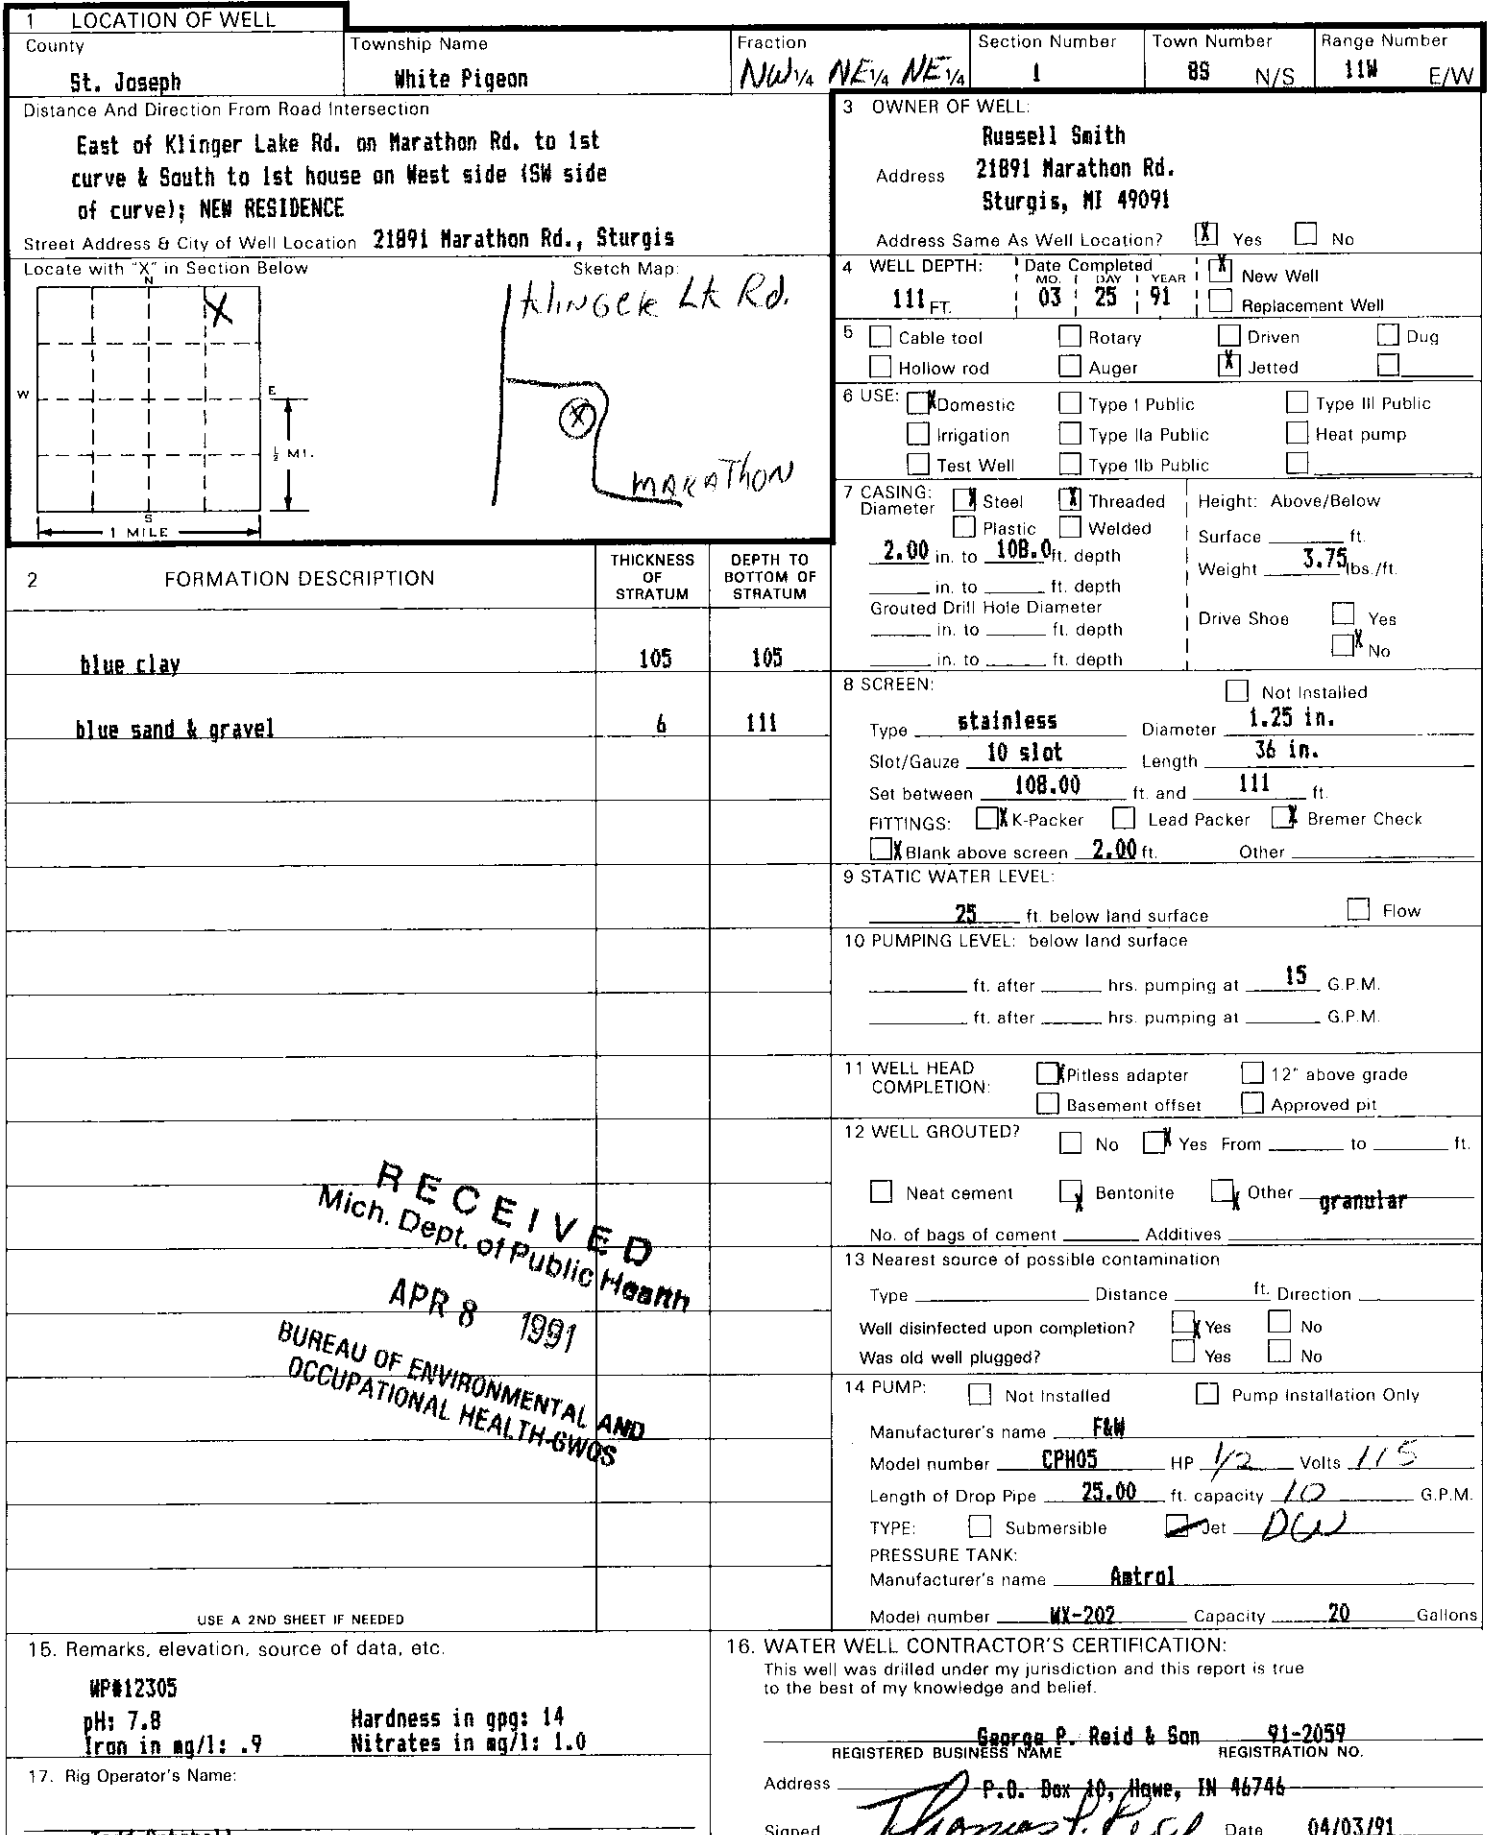 1 LOCATION OF WELL
County
St. Joseph
Township Name
White Pigeon
Fraction
NW 1/4 NE 1/4 NE 1/4
Section Number
1
Town Number
8S N/S
Range Number
11W E/W
Distance And Direction From Road Intersection
East of Klinger Lake Rd. on Marathon Rd. to 1st
curve & South to 1st house on West side (SW side
of curve); NEW RESIDENCE
Street Address & City of Well Location 21891 Marathon Rd., Sturgis
Locate with "X" in Section Below
N
X
W
E
½ MI.
S
1 MILE
Sketch Map:
Klinger Lk Rd.
X
MARATHON
2 FORMATION DESCRIPTION
THICKNESS OF STRATUM
DEPTH TO BOTTOM OF STRATUM
blue clay 105 105
blue sand & gravel 6 111
RECEIVED
Mich. Dept. of Public Health
APR 8 1991
BUREAU OF ENVIRONMENTAL AND
OCCUPATIONAL HEALTH-GWQS
USE A 2ND SHEET IF NEEDED
3 OWNER OF WELL:
Russell Smith
Address 21891 Marathon Rd.
Sturgis, MI 49091
Address Same As Well Location? X Yes No
4 WELL DEPTH:
111 FT.
Date Completed
MO. DAY YEAR
03 25 91
X New Well
Replacement Well
5 Cable tool Rotary Driven Dug
Hollow rod Auger X Jetted
6 USE: X Domestic Type I Public Type III Public
Irrigation Type IIa Public Heat pump
Test Well Type IIb Public
7 CASING: X Steel X Threaded
Diameter Plastic Welded
2.00 in. to 108.0 ft. depth
in. to ft. depth
Grouted Drill Hole Diameter
in. to ft. depth
in. to ft. depth
Height: Above/Below
Surface ft.
Weight 3.75 lbs./ft.
Drive Shoe Yes
X No
8 SCREEN: Not Installed
Type stainless Diameter 1.25 in.
Slot/Gauze 10 slot Length 36 in.
Set between 108.00 ft. and 111 ft.
FITTINGS: X K-Packer Lead Packer X Bremer Check
X Blank above screen 2.00 ft. Other
9 STATIC WATER LEVEL:
25 ft. below land surface Flow
10 PUMPING LEVEL: below land surface
ft. after hrs. pumping at 15 G.P.M.
ft. after hrs. pumping at G.P.M.
11 WELL HEAD COMPLETION: X Pitless adapter 12" above grade
Basement offset Approved pit
12 WELL GROUTED? No X Yes From to ft.
Neat cement X Bentonite X Other granular
No. of bags of cement Additives
13 Nearest source of possible contamination
Type Distance ft. Direction
Well disinfected upon completion? X Yes No
Was old well plugged? Yes No
14 PUMP: Not Installed Pump Installation Only
Manufacturer's name F&W
Model number CPH05 HP 1/2 Volts 115
Length of Drop Pipe 25.00 ft. capacity 10 G.P.M.
TYPE: Submersible Jet DW
PRESSURE TANK:
Manufacturer's name Amtrol
Model number WX-202 Capacity 20 Gallons
15. Remarks, elevation, source of data, etc.
WP#12305
pH: 7.8 Hardness in gpg: 14
Iron in mg/l: .9 Nitrates in mg/l: 1.0
17. Rig Operator's Name:
16. WATER WELL CONTRACTOR'S CERTIFICATION:
This well was drilled under my jurisdiction and this report is true
to the best of my knowledge and belief.
George P. Reid & Son 91-2059
REGISTERED BUSINESS NAME REGISTRATION NO.
Address P.O. Box 10, Howe, IN 46746
Signed Thomas P. Reid Date 04/03/91